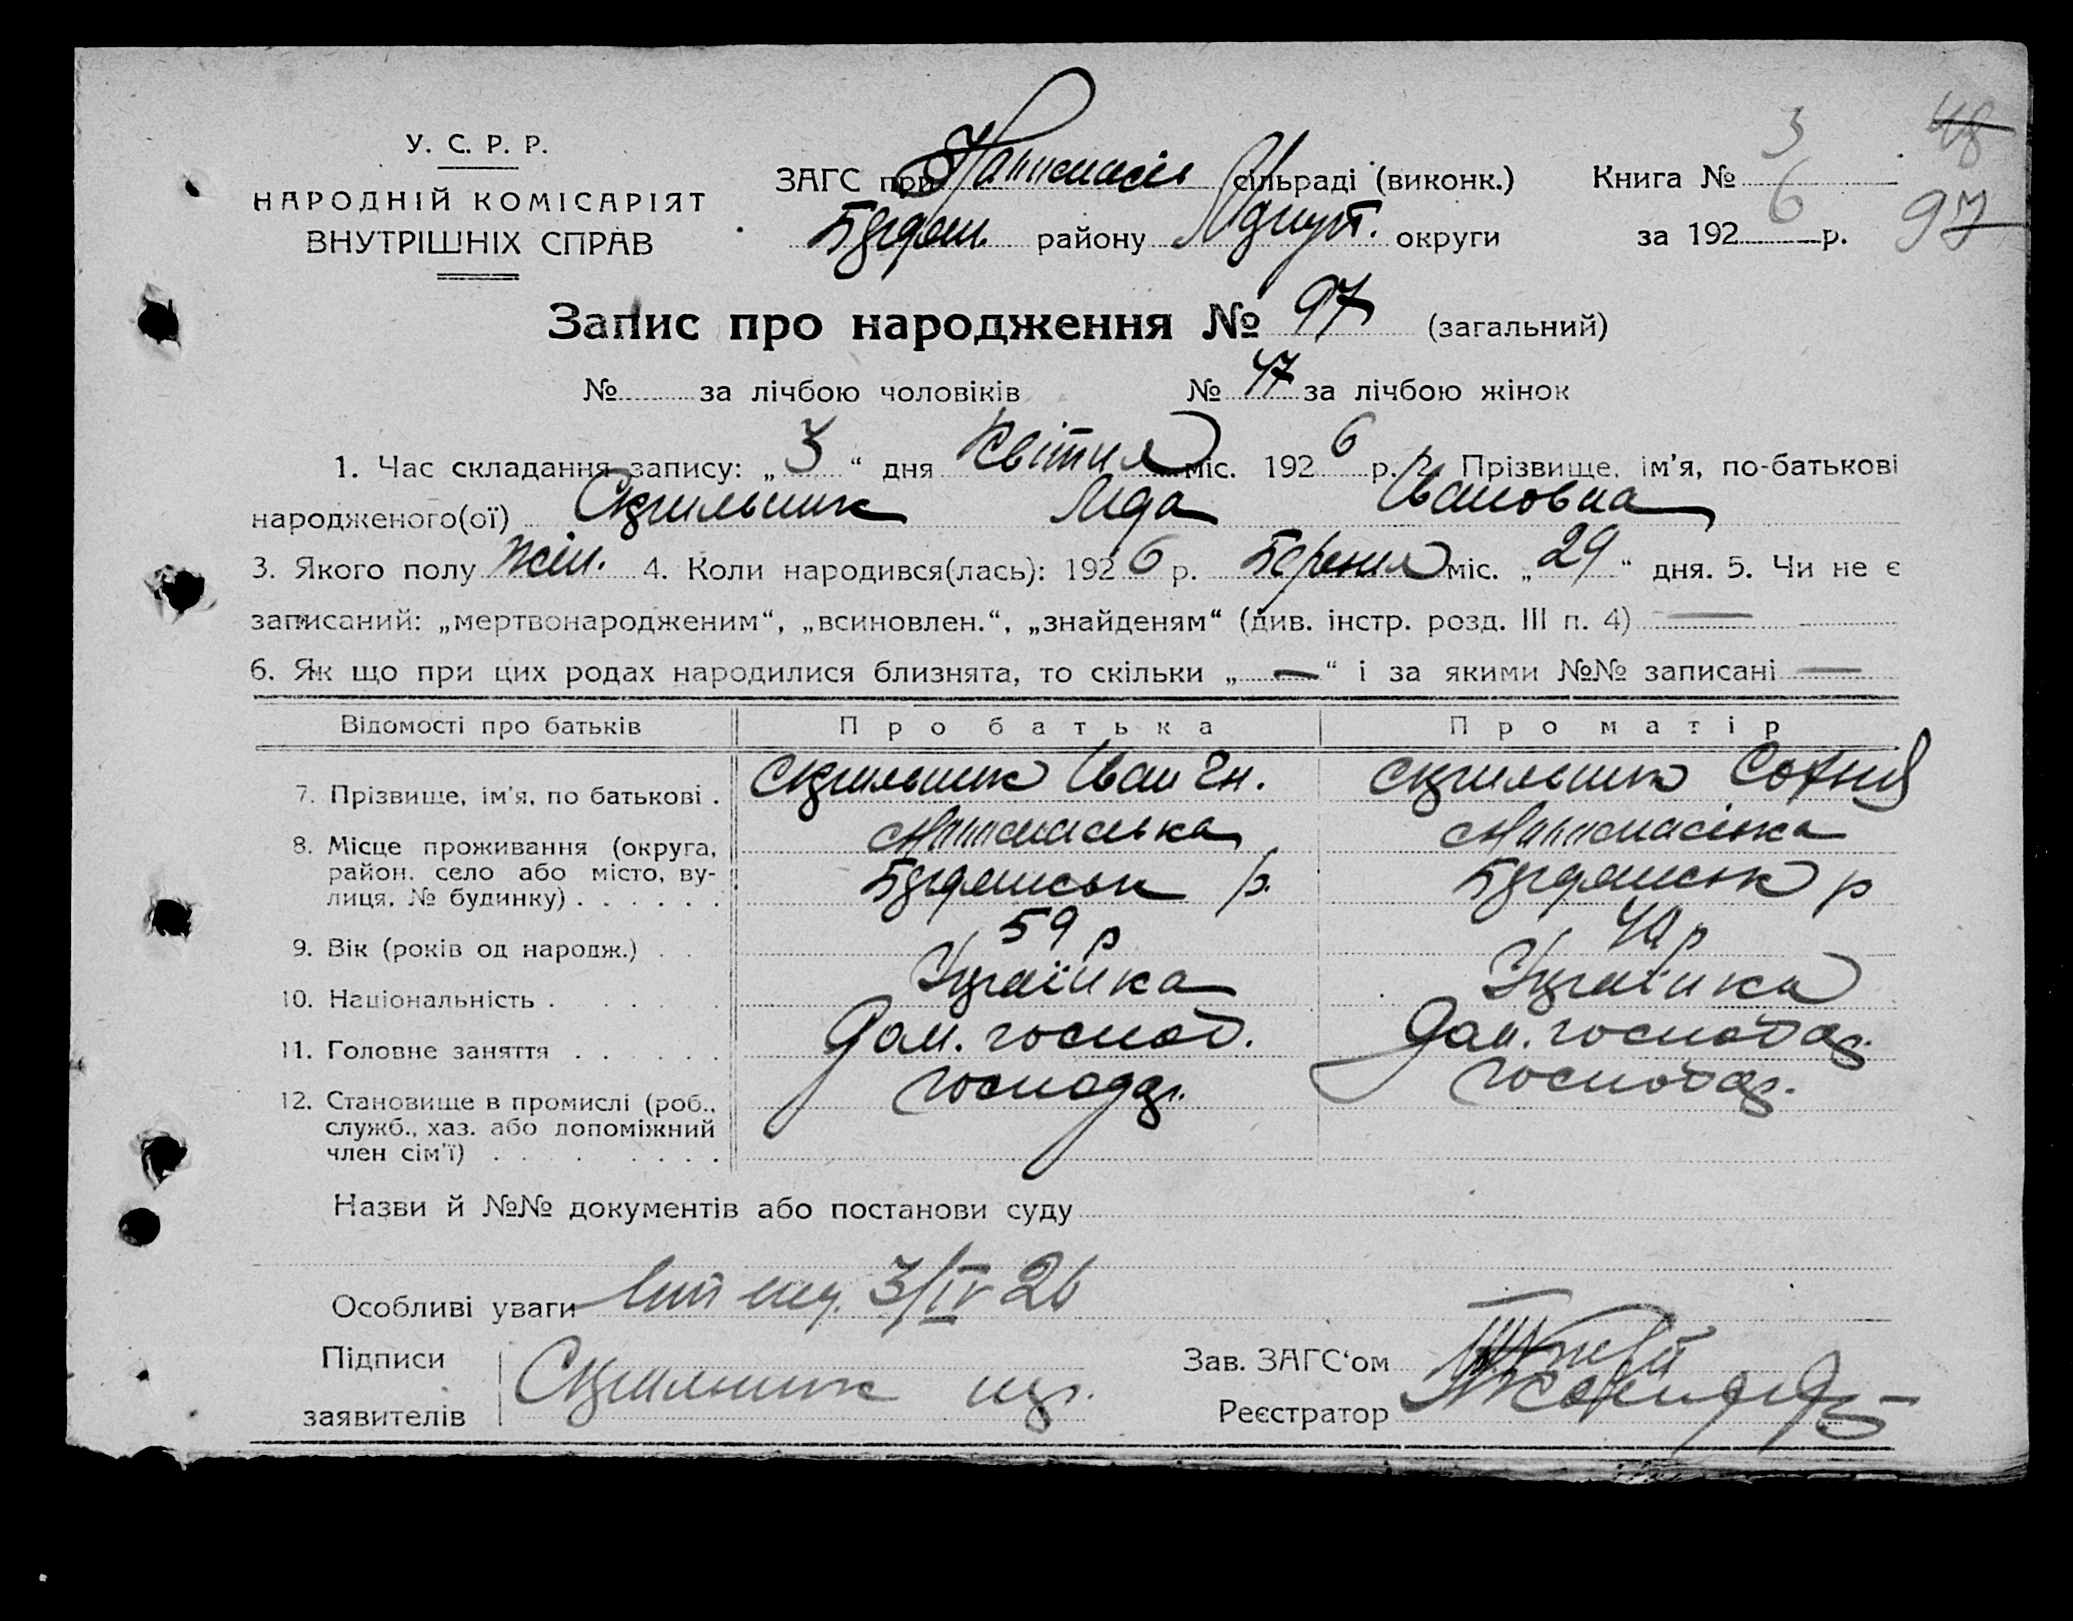 У. С. Р. Р.
НАРОДНІЙ КОМІСАРІЯТ
ВНУТРІШНІХ СПРАВ
ЗАГС при сільраді (виконк.)
району округи
Книга № 3
за 1926 р.
48
97
Запис про народження № 97 (загальний)
№ за лічбою чоловіків № 47 за лічбою жінок
1. Час складання запису: „ 3 “ дня Квітня міс. 1926 р. 2. Прізвище, ім'я, по-батькові
народженого(ої) Ліда Івановна
3. Якого полу жін. 4. Коли народився(лась): 1926 р. Березня міс. „ 29 “ дня. 5. Чи не є
записаний: „мертвонародженим“, „всиновлен.“, „знайденям“ (див. інстр. розд. III п. 4) —
6. Як що при цих родах народилися близнята, то скільки „ — “ і за якими №№ записані —
Відомості про батьків Про батька Про матір
7. Прізвище, ім'я, по батькові . Іван Софія
8. Місце проживання (округа,
район, село або місто, ву-
лиця, № будинку) . . . . . . р. р
9. Вік (років од народж.) . . 59 р р
10. Національність . . . . . Українка Українка
11. Головне заняття . . . . . Дом. господ. Дом. господар.
12. Становище в промислі (роб., господар. господар.
служб., хаз. або допоміжний
член сім'ї) . . . . . . . .
Назви й №№ документів або постанови суду
Особливі уваги 3/IV 26
Підписи
заявителів
Зав. ЗАГС'ом
Реєстратор